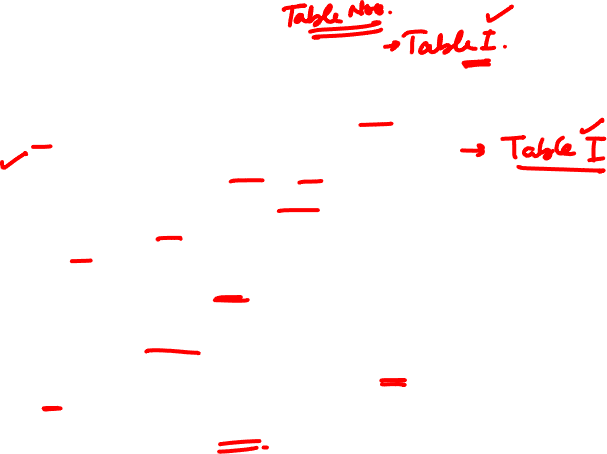 Table Nos.
→ Table I.
→ Table I